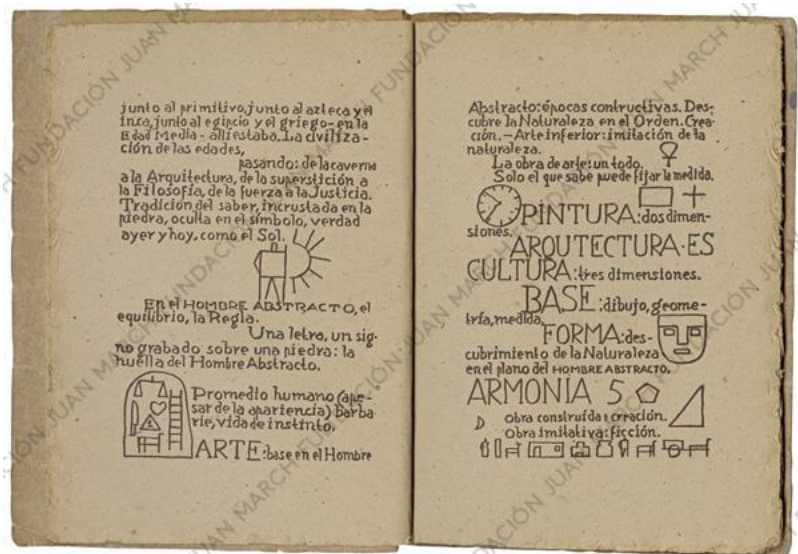 junto al primitivo, junto al azteca y el
inca, junto al egipcio y el griego - en la
Edad Media - allí estaba. La civiliza-
ción de las edades,
pasando: de la caverna
a la Arquitectura, de la superstición a
la Filosofía, de la fuerza a la Justicia.
Tradición del saber, incrustada en la
piedra, oculta en el símbolo, verdad
ayer y hoy, como el Sol.
En el HOMBRE ABSTRACTO, el
equilibrio, la Regla.
Una letra, un sig-
no grabado sobre una piedra: la
huella del Hombre Abstracto.
Promedio humano (ape-
sar de la apariencia) barba
rie, vida de instinto.
ARTE: base en el Hombre
Abstracto: épocas contructivas. Des-
cubre la Naturaleza en el Orden. Crea-
ción. - Arte inferior: imitación de la
naturaleza.
La obra de arte: un todo.
Solo el que sabe puede fijar la medida.
PINTURA: dos dimen-
siones.
ARQUTECTURA·ES
CULTURA: tres dimensiones.
BASE: dibujo, geome-
tría, medida.
FORMA: des-
cubrimiento de la Naturaleza
en el plano del HOMBRE ABSTRACTO.
ARMONIA 5
Obra construída: creación.
Obra imitativa: ficción.
FUNDACIÓN JUAN MARCH